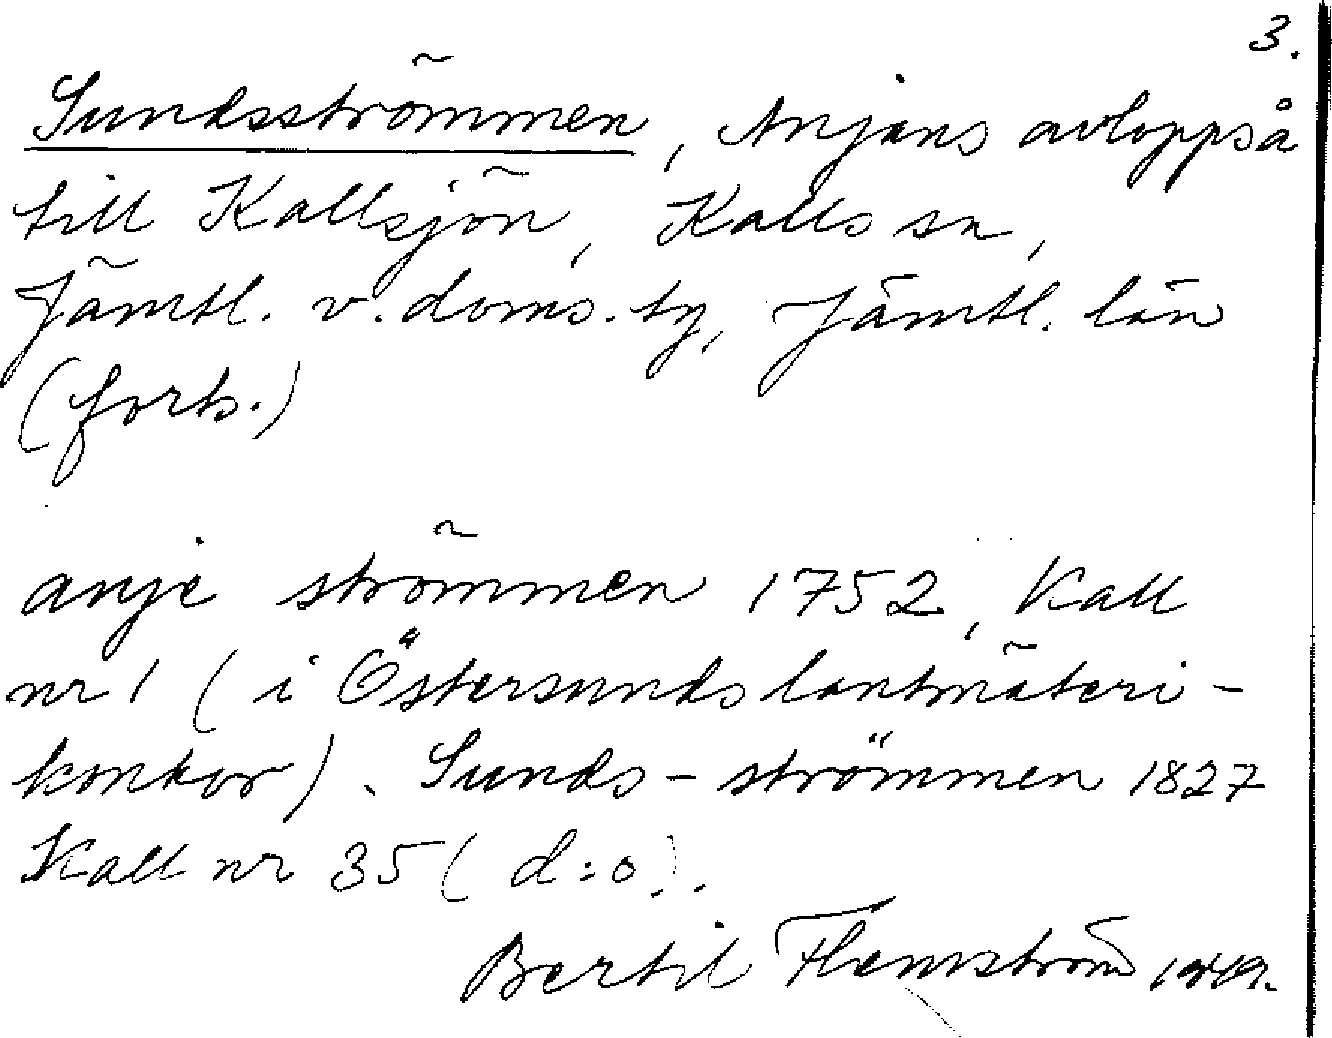 3.
Sundsströmmen, Anjans avloppså
till Kallsjön, Kalls sn,
Jämtl. v. doms. tg, Jämtl. län
(forts.)
anje strömmen 1752, Kall
nr 1 (i Östersunds lantmäteri-
kontor). Sunds-strömmen 1827
Kall nr 35 (d:o).
Bertil Flemström 1949.